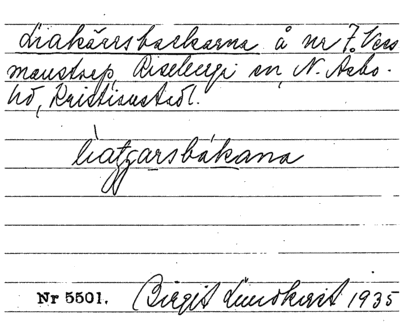 Liakärrsbackarna å nr 7. Väs
manstorp, Riseberga sn, N. Åsbo
hd, Kristianst.l.
lìagarsbákana
Nr 5501. Birgit Lundkvist 1935